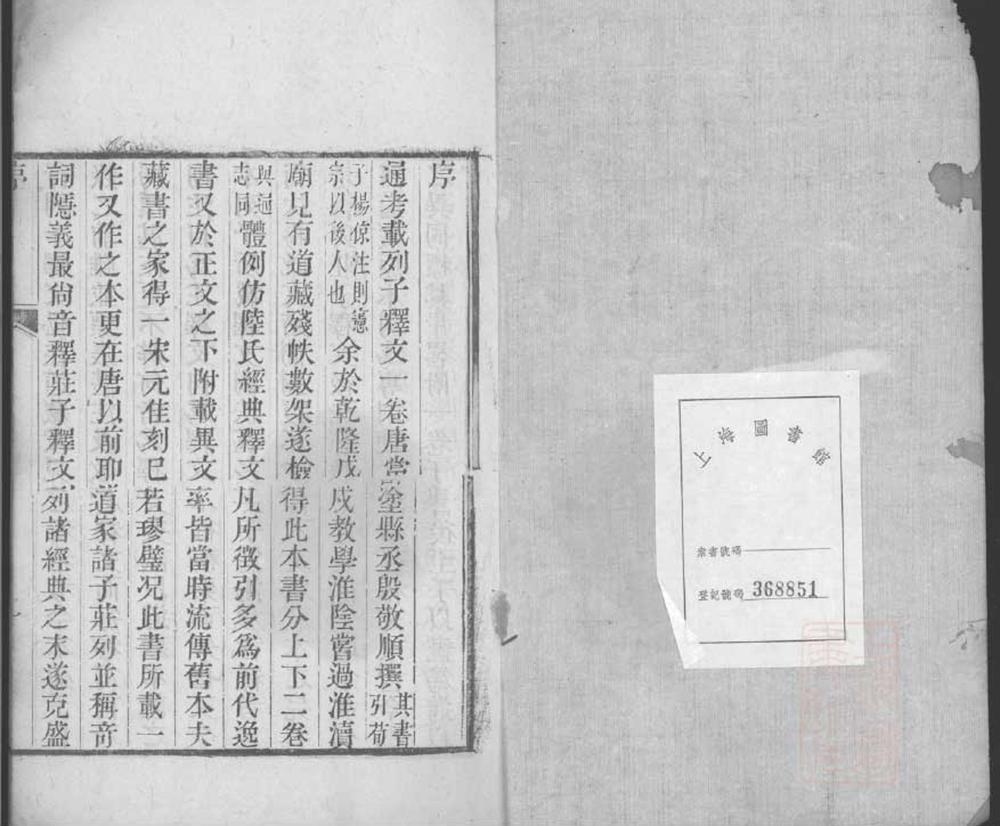 序
通考載列子釋文一卷唐當塗縣丞殷敬順撰其書引荀
子楊倞注則憲宗以後人也余於乾隆戊戌教學淮陰嘗過淮瀆
廟見有道藏殘帙數架遂檢得此本書分上下二卷
與通志同體例仿陸氏經典釋文凡所徵引多爲前代逸
書又於正文之下附載異文率皆當時流傳舊本夫
藏書之家得一宋元佳刻已若璆璧况此書所載一
作又作之本更在唐以前耶道家諸子莊列並稱竒
詞隱義最尙音釋莊子釋文列諸經典之末遂克盛
序
上海圖書館
索書號碼
登記號碼 368851